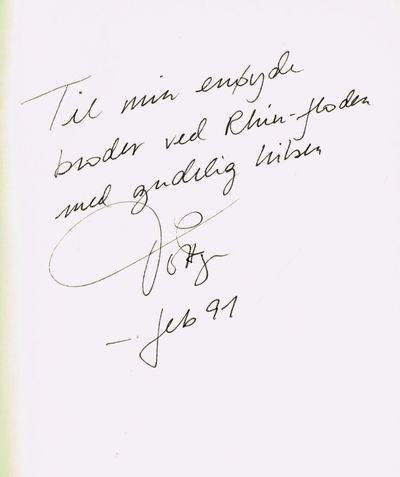 Til min enøyde
broder ved Rhin-floden
med gudelig hilsen
– feb 91